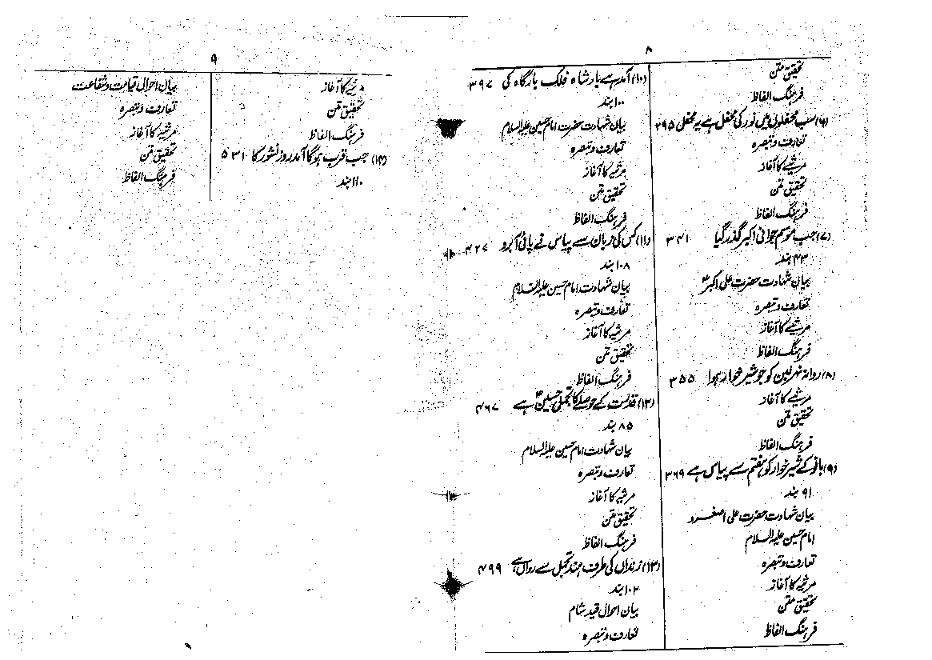 ۸
تحقیق متن
فرہنگ الفاظ
(۶) سب محفلوں میں نور کی محفل ہے یہ محفل ۳۹۵
تعارف و تبصرہ
مرثیے کا آغاز
تحقیق متن
فرہنگ الفاظ
(۷) جب موسمِ جوانیِ اکبر گذر گیا ۳۴۱
۴۳ بند
بیان شہادت حضرت علی اکبرؑ
تعارف و تبصرہ
مرثیے کا آغاز
فرہنگ الفاظ
(۸) روانہ نہر لبن کو جو شیر خوار ہوا ۳۵۵
مرثیے کا آغاز
تحقیق متن
فرہنگ الفاظ
(۹) بانو کے شیر خوار کو ہفتم سے پیاس ہے ۳۶۹
۹۱ بند
بیان شہادت حضرت علی اصغر و
امام حسین علیہ السلام
تعارف و تبصرہ
مرثیے کا آغاز
تحقیق متن
فرہنگ الفاظ
(۱۰) آمد ہے بادشاہ فلک بارگاہ کی ۳۹۷
۱۰۰ بند
بیان شہادت حضرت امام حسین علیہ السلام
تعارف و تبصرہ
مرثیے کا آغاز
تحقیق متن
فرہنگ الفاظ
(۱۱) کس کی زبان سے پیاس نے پائی آبرو ۴۲۷
۱۰۸ بند
بیان شہادت امام حسین علیہ السلام
تعارف و تبصرہ
مرثیہ کا آغاز
تحقیق متن
فرہنگ الفاظ
(۱۲) قدرت کے حوصلے کا تجمل حسینؑ ہے ۴۶۷
۸۵ بند
بیان شہادت امام حسین علیہ السلام
تعارف و تبصرہ
مرثیہ کا آغاز
تحقیق متن
فرہنگ الفاظ
(۱۳) زنداں کی طرف ہند تجمل سے رواں ہے ۴۹۹
۱۰۲ بند
بیان احوال قید شام
تعارف و تبصرہ
۹
مرثیے کا آغاز
تحقیق متن
فرہنگ الفاظ
(۱۴) جب قرب ہوگا آمد روز نشور کا ۵۳۱
۱۱۰ بند
بیان احوال قیامت و شفاعت
تعارف و تبصرہ
مرثیہ کا آغاز
تحقیق متن
فرہنگ الفاظ